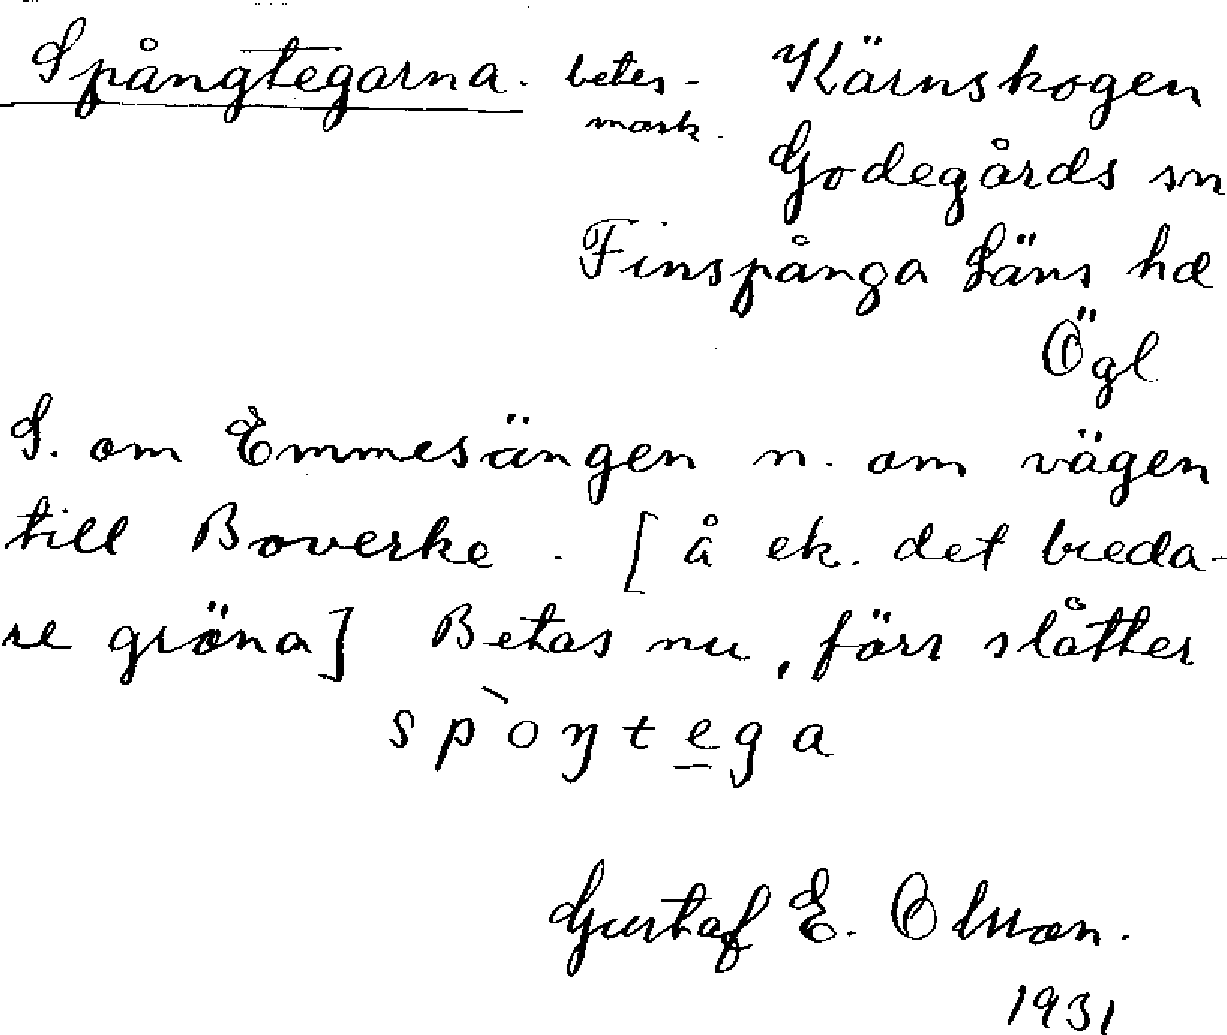 Spångtegarna. betes- Kärnskogen
mark.
Godegårds sn
Finspånga Läns hd
Ögl
S. om Emmesängen n. om vägen
till Boverke. [å ek. det breda-
re gröna] Betas nu, förr slåtter
spòŋtega
Gustaf E. Olsson.
1931